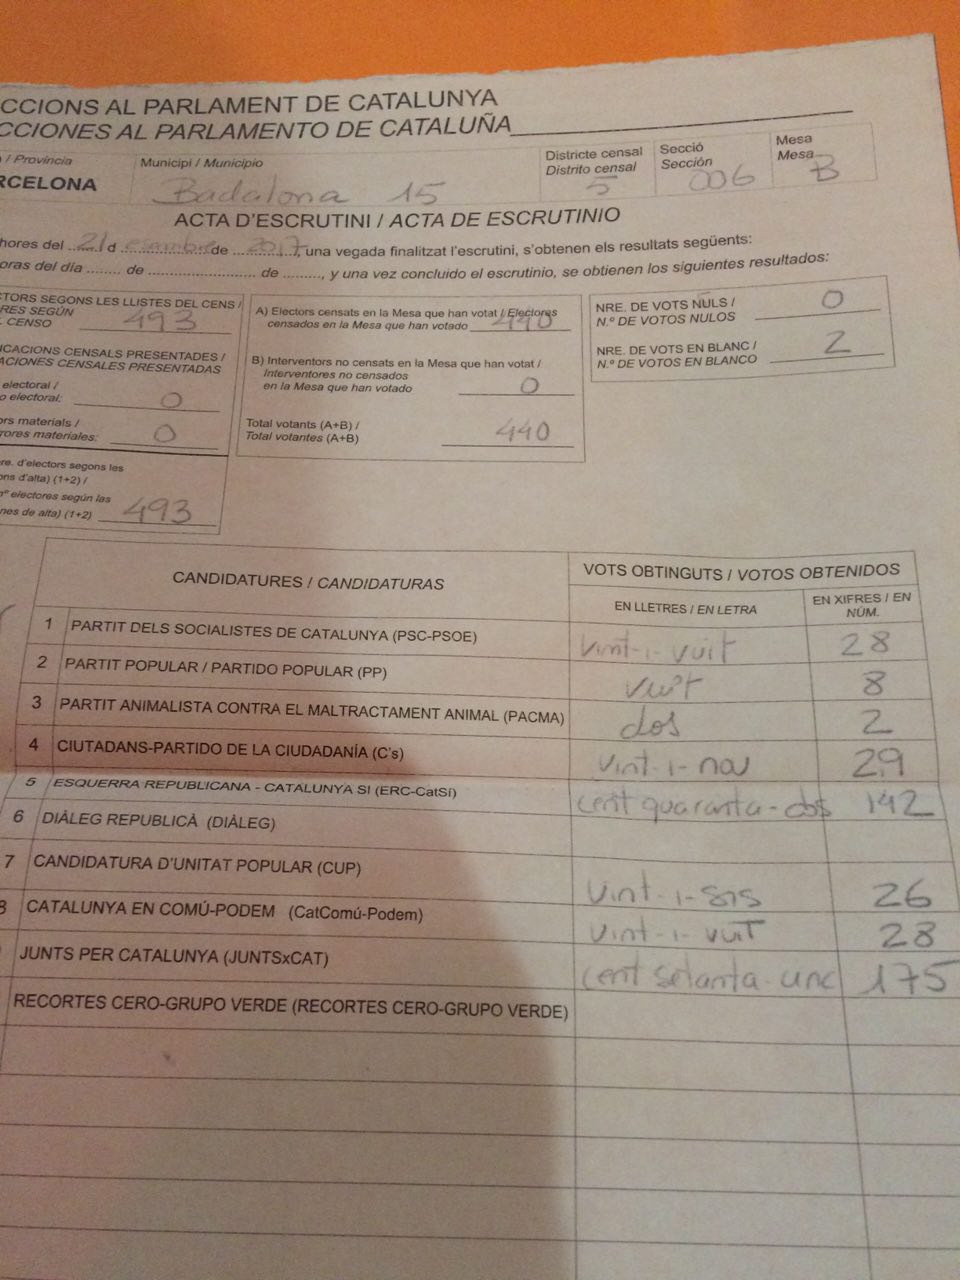 CCIONS AL PARLAMENT DE CATALUNYA
CCIONES AL PARLAMENTO DE CATALUÑA
/ Provincia
RCELONA
Municipi / Municipio
Badalona 15
Districte censal
Distrito censal
5
Secció
Sección
006
Mesa
Mesa
B
ACTA D'ESCRUTINI / ACTA DE ESCRUTINIO
hores del 21 d de 2017, una vegada finalitzat l'escrutini, s'obtenen els resultats següents:
oras del día ........ de .............................. de ........., y una vez concluido el escrutinio, se obtienen los siguientes resultados:
CTORS SEGONS LES LLISTES DEL CENS /
RES SEGÚN
CENSO 493
ICACIONS CENSALS PRESENTADES /
ACIONES CENSALES PRESENTADAS
electoral /
o electoral: 0
ors materials /
rores materiales: 0
re. d'electors segons les
ons d'alta) (1+2) /
nº electores según las
nes de alta) (1+2) 493
A) Electors censats en la Mesa que han votat / Electores
censados en la Mesa que han votado 440
B) Interventors no censats en la Mesa que han votat /
Interventores no censados
en la Mesa que han votado 0
Total votants (A+B) /
Total votantes (A+B) 440
NRE. DE VOTS NULS /
N.º DE VOTOS NULOS 0
NRE. DE VOTS EN BLANC /
N.º DE VOTOS EN BLANCO 2
CANDIDATURES / CANDIDATURAS
VOTS OBTINGUTS / VOTOS OBTENIDOS
EN LLETRES / EN LETRA
EN XIFRES / EN
NÚM.
1 PARTIT DELS SOCIALISTES DE CATALUNYA (PSC-PSOE) vint-i-vuit 28
2 PARTIT POPULAR / PARTIDO POPULAR (PP) vuit 8
3 PARTIT ANIMALISTA CONTRA EL MALTRACTAMENT ANIMAL (PACMA) dos 2
4 CIUTADANS-PARTIDO DE LA CIUDADANÍA (C's) vint-i-nou 29
5 ESQUERRA REPUBLICANA - CATALUNYA SI (ERC-CatSí) cent quaranta-dos 142
6 DIÀLEG REPUBLICÀ (DIÀLEG)
7 CANDIDATURA D'UNITAT POPULAR (CUP) vint-i-sis 26
8 CATALUNYA EN COMÚ-PODEM (CatComú-Podem) vint-i-vuit 28
JUNTS PER CATALUNYA (JUNTSxCAT) cent setanta-cinc 175
RECORTES CERO-GRUPO VERDE (RECORTES CERO-GRUPO VERDE)